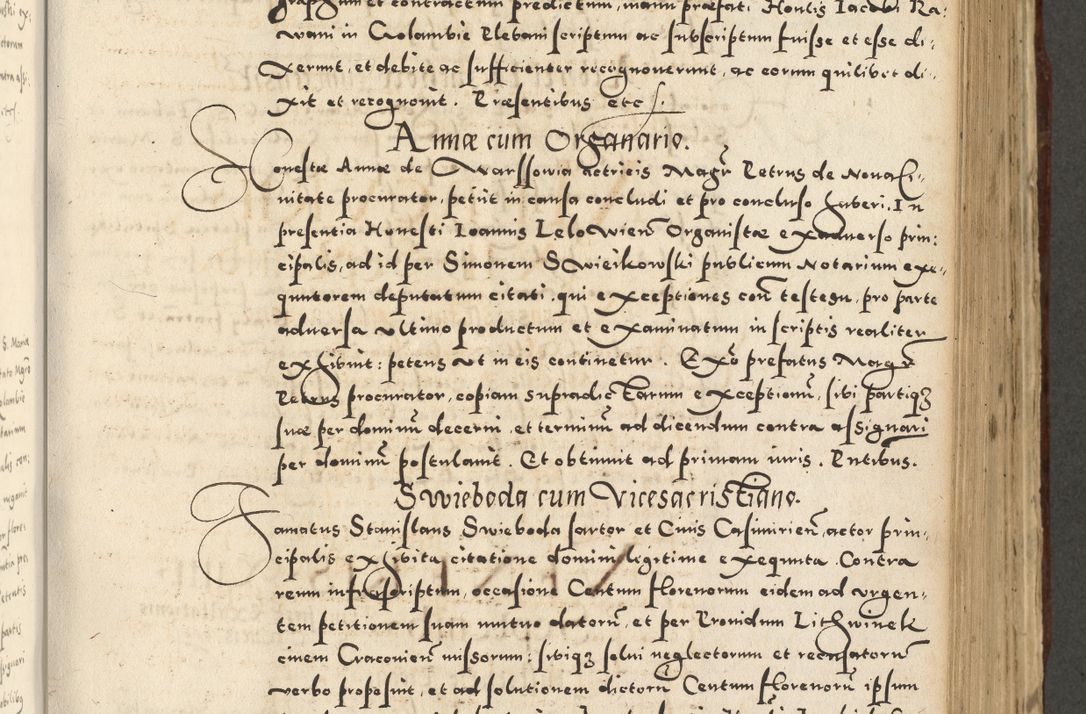 graphum et contractum predictum, manu præfati Honlis Iacobi Ra:
wani in Wolambie Plebani scriptum ac subscriptum fuisse et esse di:
xerunt, et debite ac sufficienter recognouerunt, ac eorum quilibet di:
xit et recognouit. Præsentibus etc.
Annæ cum Organario.
Honestæ Annæ de Warssowia actricis Magr Petrus de Noua Ci:
uitate procurator, petiit in causa concludi et pro concluso haberi. In
presentia Honesti Ioannis Lelowien Organistæ ex aduerso prin:
cipalis, ad id per Simonem Swieikowski publicum Notarium exe:
quutorem deputatum citati, qui exceptiones con testem, pro parte
aduersa ultimo productum et examinatum in scriptis realiter
exhibuit: petens ut in eis continetur. Ex qo prefatus Magr
Petrus procurator, copiam supradictarum exceptionu, sibi partiqz
suæ per dominu decerni et terminu ad dicendum contra assignari
per dominu postulauit. Et obtinuit ad primam iuris. Pntibus.
Swieboda cum Vicesacristiano.
Famatus Stanislaus Swieboda sartor et Ciuis Casimirien, actor prin:
cipalis exhibita citatione domini legitime exequuta. Contra
reum infrascriptum, occasione Centum florenorum eidem ad vrgen:
tem petitionem suam mutuo datoru, et per Prouidum Lithwinek
ciuem Cracouien missorum: sibiqz solui neglectorum et recusatoru
verbo proposuit, et ad solutionem dictoru Centum florenoru ipsum